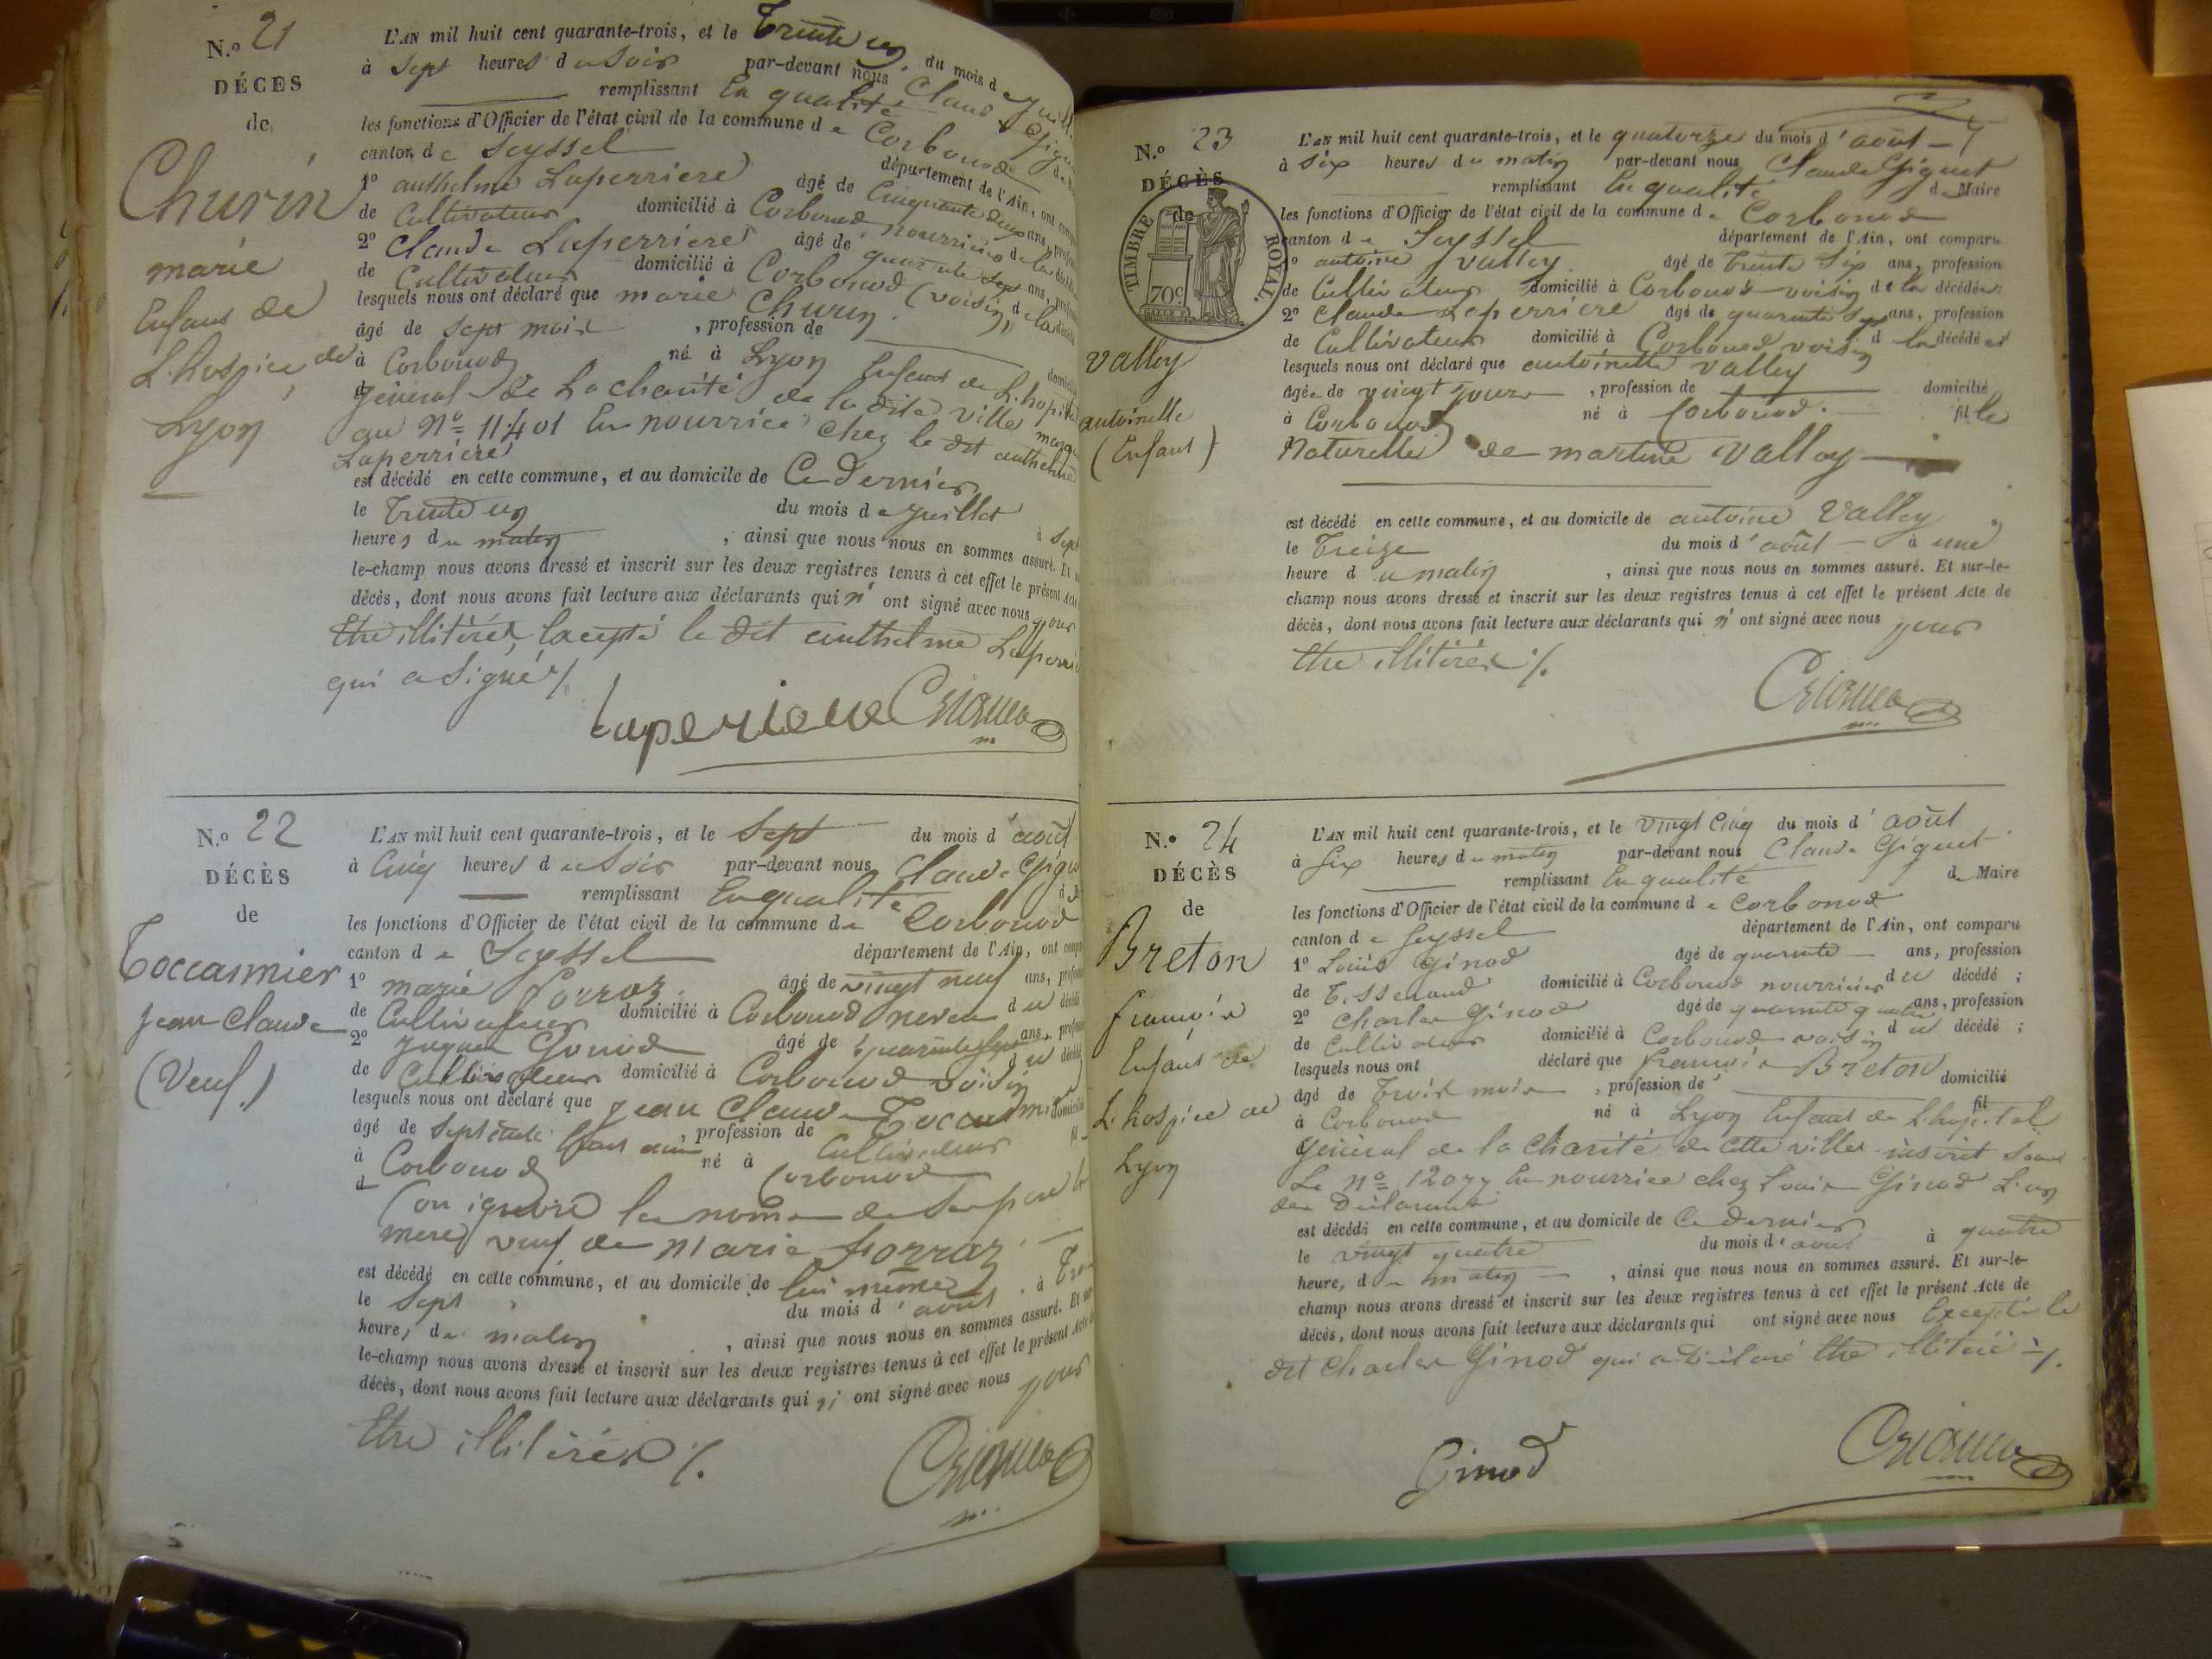 N.º 21
DÉCES
de
Churin
marie
Enfant de
L'hospice de
Lyon
L'AN mil huit cent quarante-trois, et le Trente un du mois de Juill
à Sept heures du Soir par-devant nous Claude Gigu
remplissant En qualité
les fonctions d'Officier de l'état civil de la commune de Corbonod
canton de Seyssel département de l'Ain, ont comp
1º anthelme Laperriere âgé de Cinquante deux ans, profes
de Cultivateur domicilié à Corbonod nourricier de la décéd
2º Claude Laperriere âgé de quarante Sept ans, profe
de Cultivateur domicilié à Corbonod (voisin) de la décéd
lesquels nous ont déclaré que marie Churin
âgé de Sept mois , profession de domici
à Corbonod né à Lyon Enfant de L'hopital
général de La charité de la dite ville marq
au Nº 11401 En nourrice chez le dit anthelme
Laperriere
est décédé en cette commune, et au domicile de Ce dernier
le Trente un du mois de juillet à Sept
heures du matin , ainsi que nous nous en sommes assuré. Et
le-champ nous avons dressé et inscrit sur les deux registres tenus à cet effet le présent Acte
décès, dont nous avons fait lecture aux déclarants qui n' ont signé avec nous pour
Etre illitérés, Excepté le dit anthelme Laperri
qui a Signé ./.
Laperriere
N.º 22
DÉCÈS
de
Toccasmier
jean Claude
(Veuf)
L'AN mil huit cent quarante-trois, et le Sept du mois d'août
à Cinq heures du Soir par-devant nous Claude Gigu
remplissant En qualité d
les fonctions d'Officier de l'état civil de la commune de Corbonod
canton de Seyssel département de l'Ain, ont comp
1º marie forraz âgé de vingt neuf ans, profess
de Cultivateur domicilié à Corbonod neveu du décédé
2º Gonod âgé de quarante Sept ans, profess
de Cultivateur domicilié à Corbonod voisin du décédé
lesquels nous ont déclaré que jean Claude Toccasmier
âgé de Septante ans , profession de Cultivateur domicilié
à Corbonod né à Corbonod fil
d (on ignore les noms de Ses pere &
mere) veuf de Marie forraz
est décédé en cette commune, et au domicile de lui même
le Sept du mois d'août à Trois
heures du matin , ainsi que nous nous en sommes assuré. Et sur
le-champ nous avons dressé et inscrit sur les deux registres tenus à cet effet le présent Acte de
décès, dont nous avons fait lecture aux déclarants qui n' ont signé avec nous pour
Etre illitérés ./.
N.º 23
DÉCÈS
de
TIMBRE ROYAL.
70c
Valloy
antoinette
(Enfant)
L'AN mil huit cent quarante-trois, et le quatorze du mois d'août
à Six heures du matin par-devant nous Claude Giguet
remplissant En qualité de Maire
les fonctions d'Officier de l'état civil de la commune de Corbonod
canton de Seyssel département de l'Ain, ont comparu
1º antoine Valloy âgé de trente Six ans, profession
de Cultivateur domicilié à Corbonod voisin de la décédée
2º Claude Laperriere âgé de quarante Sept ans, profession
de Cultivateur domicilié à Corbonod voisin d la décédée
lesquels nous ont déclaré que antoinette Valloy
âgée de vingt jours , profession de domicilié
à Corbonod né à Corbonod. fille
Naturelle de martine Valloy
est décédé en cette commune, et au domicile de antoine Valloy
le Treize du mois d'août à une
heure du matin , ainsi que nous nous en sommes assuré. Et sur-le-
champ nous avons dressé et inscrit sur les deux registres tenus à cet effet le présent Acte de
décès, dont nous avons fait lecture aux déclarants qui n' ont signé avec nous pour
Etre illitérés ./.
N.º 24
DÉCÈS
de
Breton
françois
Enfant de
L'hospice de
Lyon
L'AN mil huit cent quarante-trois, et le vingt Cinq du mois d'août
à Six heures du matin par-devant nous Claude Giguet
remplissant En qualité de Maire
les fonctions d'Officier de l'état civil de la commune de Corbonod
canton de Seyssel département de l'Ain, ont comparu
1º Louis Ginod âgé de quarante ans, profession
de Tisserand domicilié à Corbonod nourricier du décédé ;
2º Charles Ginod âgé de quarante quatre ans, profession
de Cultivateur domicilié à Corbonod voisin du décédé ;
lesquels nous ont déclaré que françois Breton
âgé de Trois mois , profession de domicilié
à Corbonod né à Lyon Enfant de L'hopital fil
général de la Charité de Cette ville inscrit Sous
Le nº 12077 En nourrice chez Louis Ginod L'un
des Déclarants
est décédé en cette commune, et au domicile de Ce dernier
le vingt quatre du mois d'août à quatre
heure, du matin , ainsi que nous nous en sommes assuré. Et sur-le-
champ nous avons dressé et inscrit sur les deux registres tenus à cet effet le présent Acte de
décès, dont nous avons fait lecture aux déclarants qui ont signé avec nous Excepté le
dit Charles Ginod qui a Déclaré Etre illitéré ./.
Ginod